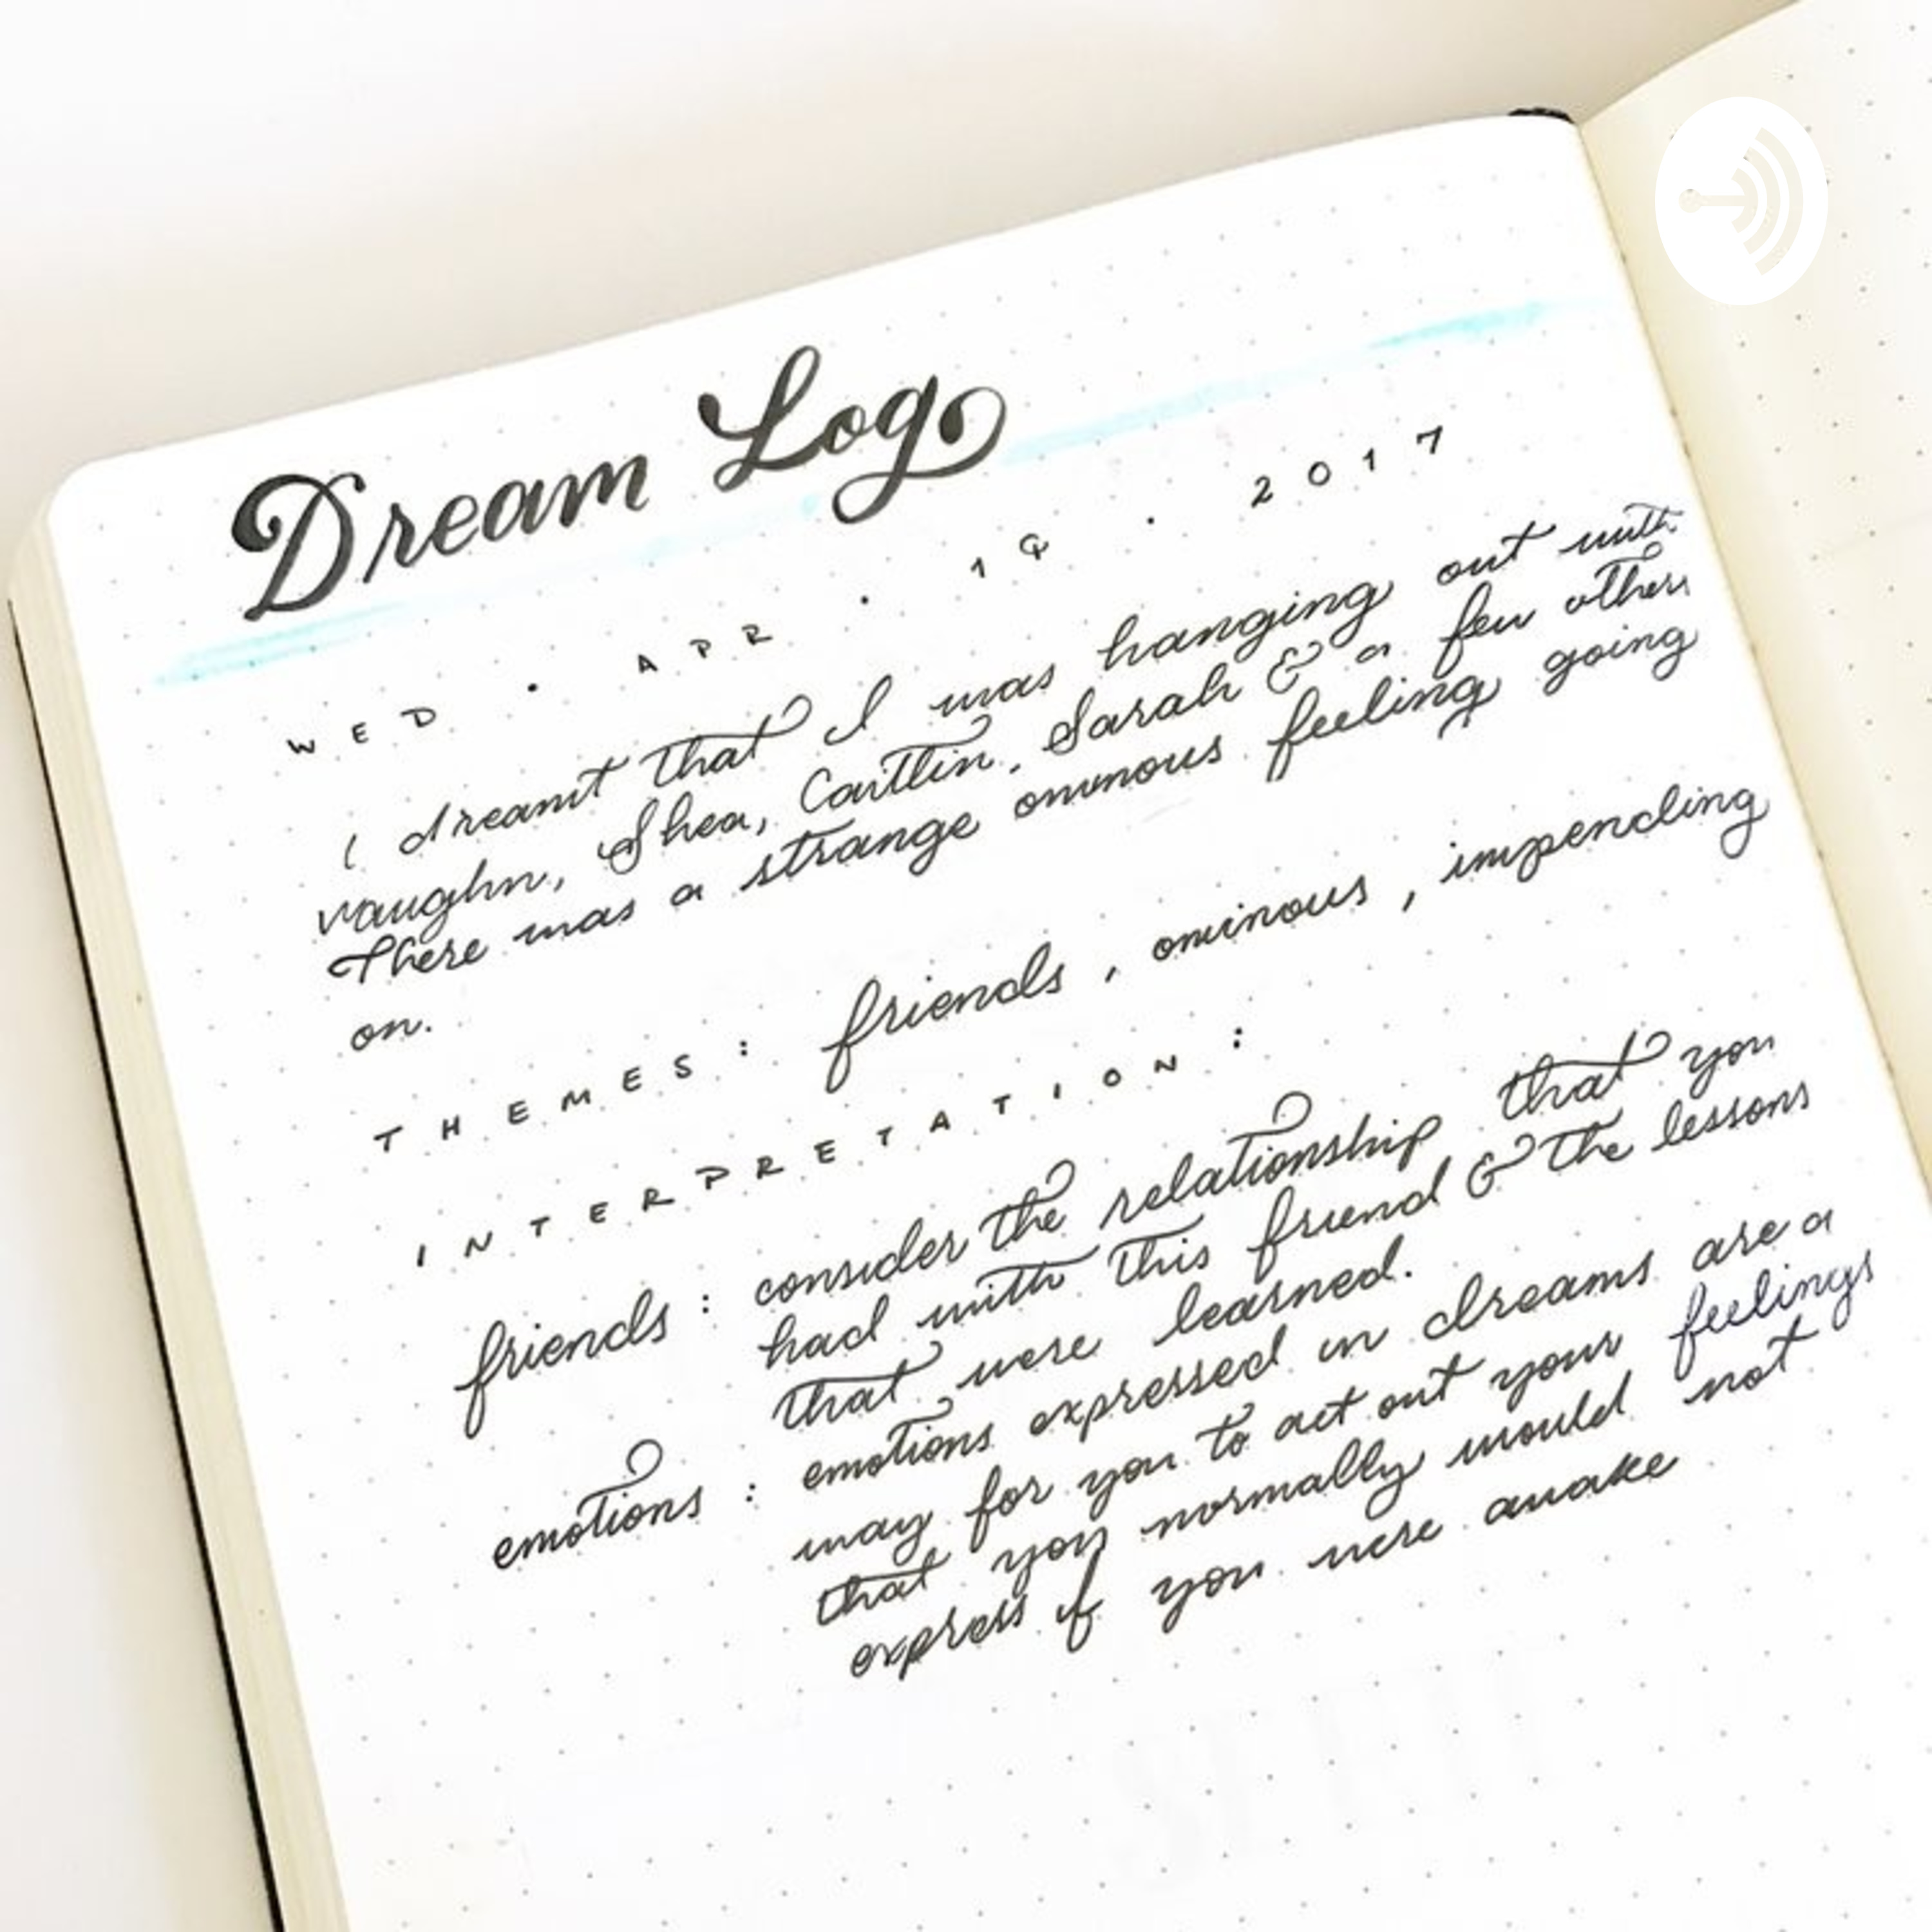 Dream Log
WED . APR . 19 . 2017
I dreamt that I was hanging out with
vaughn, Shea, Caitlin, Sarah & a few others
There was a strange ominous feeling going
on.
THEMES: friends, ominous, impending
INTERPRETATION:
friends: consider the relationship that you
had with this friend & the lessons
that were learned.
emotions: emotions expressed in dreams are a
way for you to act out your feelings
that you normally would not
express if you were awake